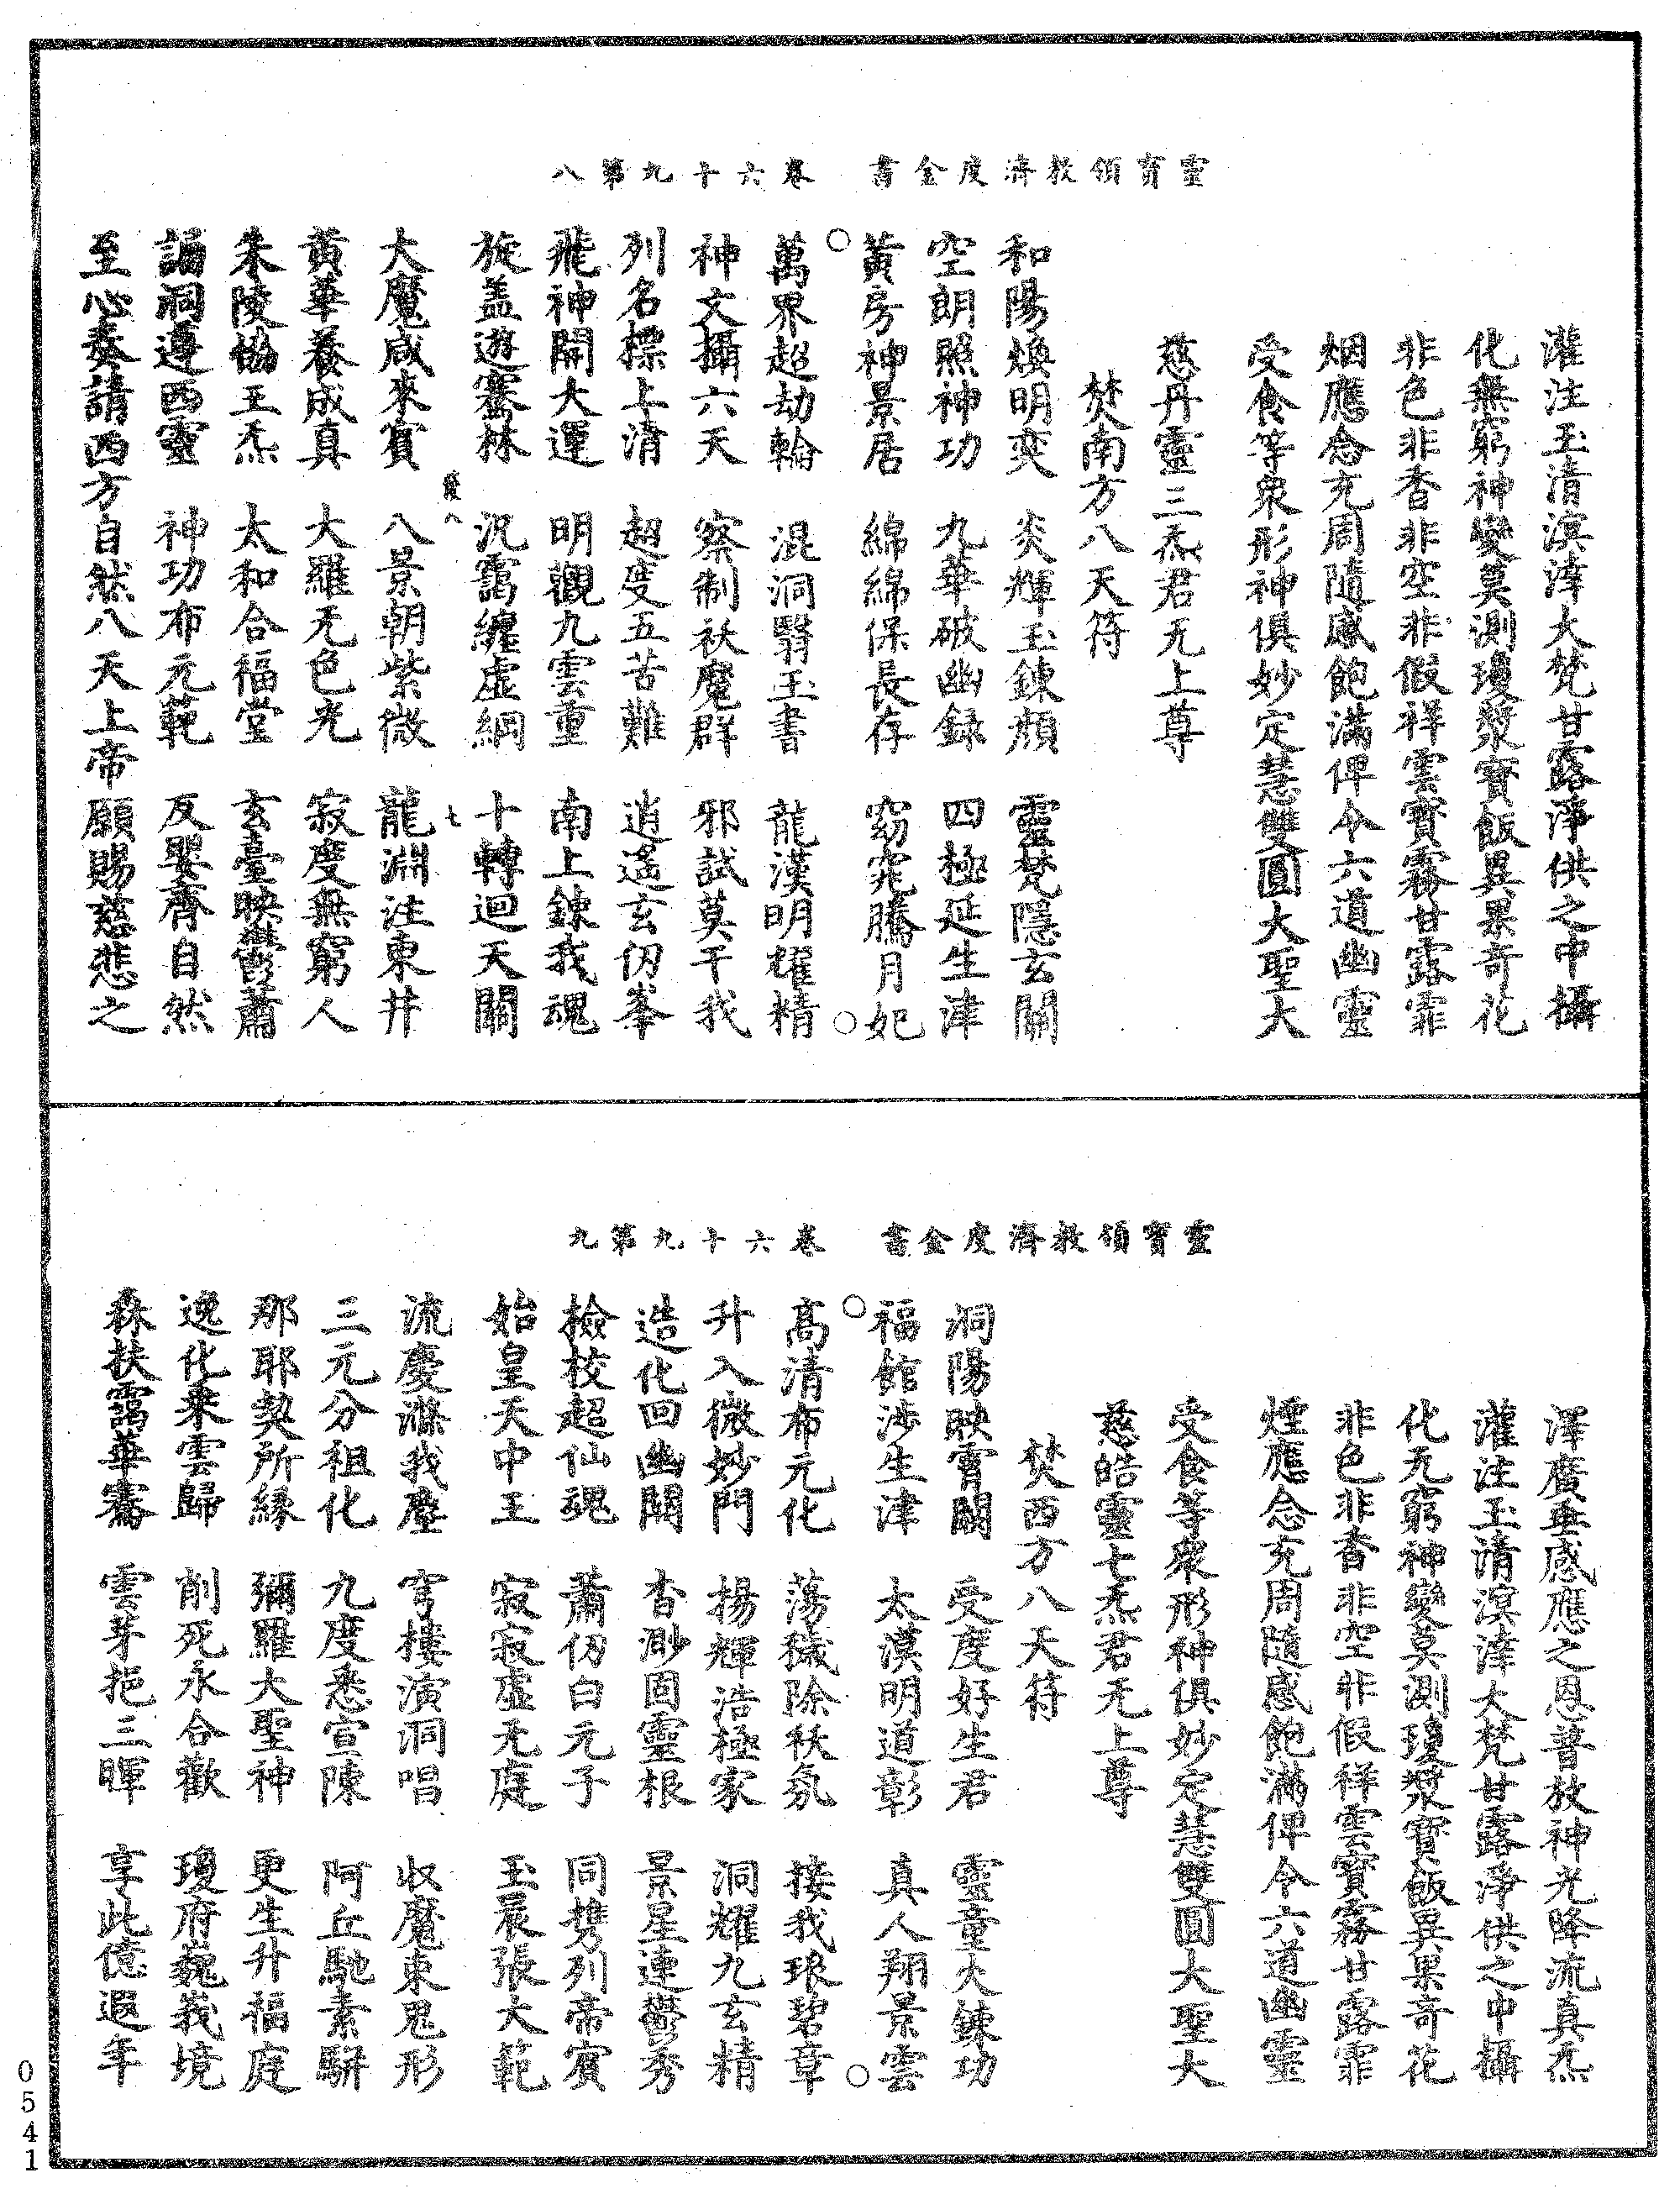 靈寶領教濟度金書　卷六十九第八
灌注玉清溟涬大梵甘露淨供之中攝
化無窮神變莫測瓊漿寶飯異果奇花
非色非香非空非假祥雲寶霧甘露霏
烟應念充周隨感飽滿俾令六道幽靈
受食等衆形神俱妙定慧雙圓大聖大
慈丹靈三炁君无上尊
焚南方八天符
和陽煥明奕　炎輝玉鍊顏　靈梵隱玄關
空朗照神功　九華破幽録　四極延生津
黃房神景居　綿綿保長存　窈窕騰月妃
○萬界超劫輪　混洞翳玉書　龍漢明耀精○
神文攝六天　察制祅魔群　邪試莫干我
列名標上清　超度五苦難　逍遙玄仞峯
飛神開大運　明觀九雲重　南上鍊我魂
旋盖遊騫林　汎靄纏虛綱　十轉迴天關
八　七
大魔咸來賓　八景朝紫微　龍淵注東井
黃華養成真　大羅无色光　寂度無窮人
朱陵協王炁　太和合福堂　玄臺映鬱蕭
誦洞還西靈　神功布元範　反嬰齊自然
至心奏請西方自然八天上帝願賜慈悲之
靈寶領教濟度金書　卷六十九第九
澤廣垂感應之恩普放神光降流真炁
灌注玉清溟涬大梵甘露淨供之中攝
化无窮神變莫測瓊漿寶飯異果奇花
非色非香非空非假祥雲寶霧甘露霏
煙應念充周隨感飽滿俾令六道幽靈
受食等衆形神俱妙定慧雙圓大聖大
慈皓靈七炁君无上尊
焚西方八天符
洞陽映霄關　受度好生君　靈童火鍊功
福館涉生津　太漠明道彰　真人翔景雲
○高清布元化　蕩穢除祅氛　接我琅碧章○
升入微妙門　揚輝浩極家　洞耀九玄精
造化回幽關　杳渺固靈根　景星連鬱秀
檢校超仙魂　蕭仞白元子　同携列帝賓
始皇天中王　寂寂虛无庭　玉晨張大範
流慶滌我塵　穹樓演洞唱　收魔束鬼形
三元分祖化　九度悉宣陳　阿丘馳素騈
那耶契所緣　彌羅大聖神　更生升福庭
逸化乘雲歸　削死永合歡　瓊府巍峩境
森扶靄華騫　雲芽挹三暉　享此億遐年
0541